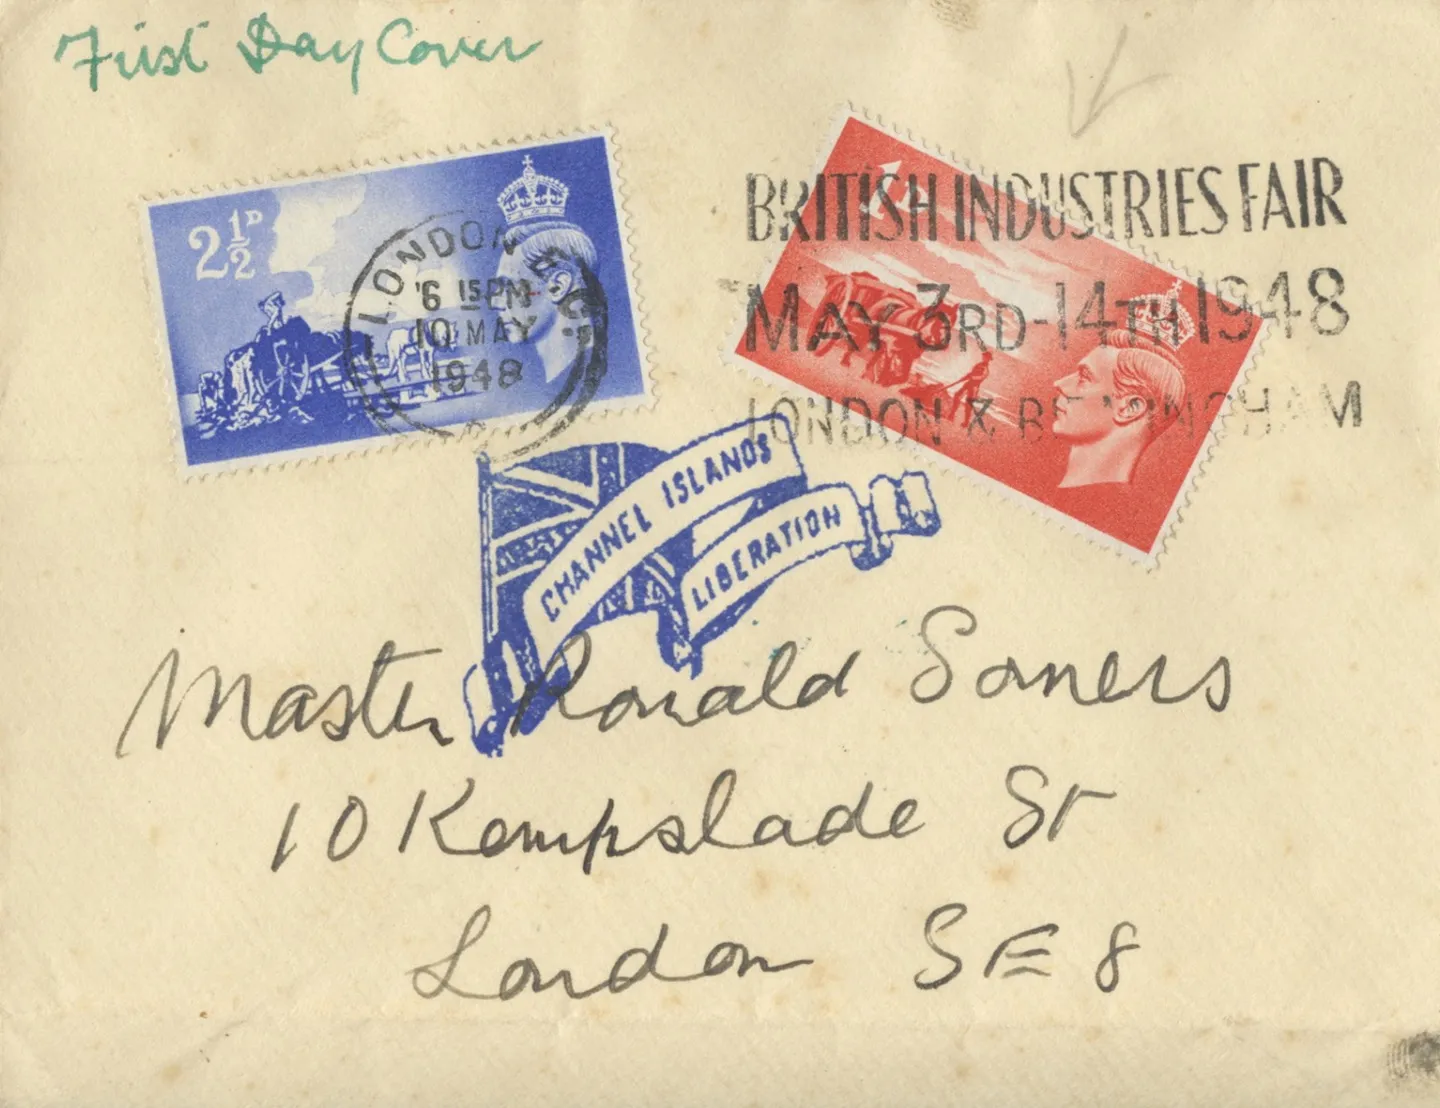 First Day Cover
2½D
LONDON E.C.
6 15 PM
10 MAY
1948
BRITISH INDUSTRIES FAIR
MAY 3RD-14TH 1948
LONDON & BIRMINGHAM
CHANNEL ISLANDS
LIBERATION
Master Ronald Somers
10 Kempslade St
London SE 8